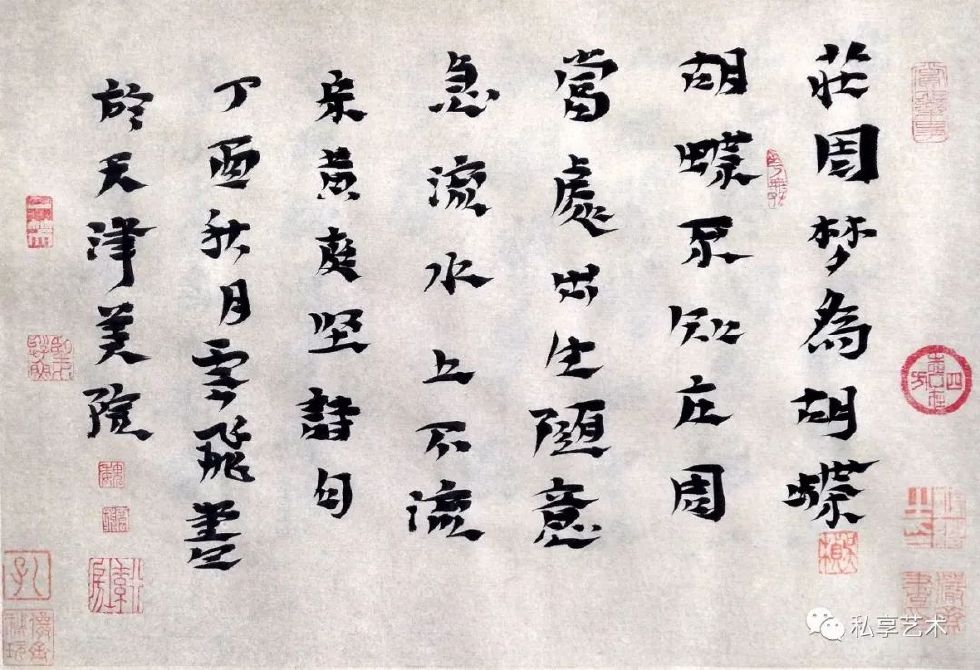 莊周梦為胡蝶
胡蝶不知庄周
當處出生隨意
急流水上不流
宋黄庭坚詩句
丁酉秋月雲飛書
於天津美院
私享艺术